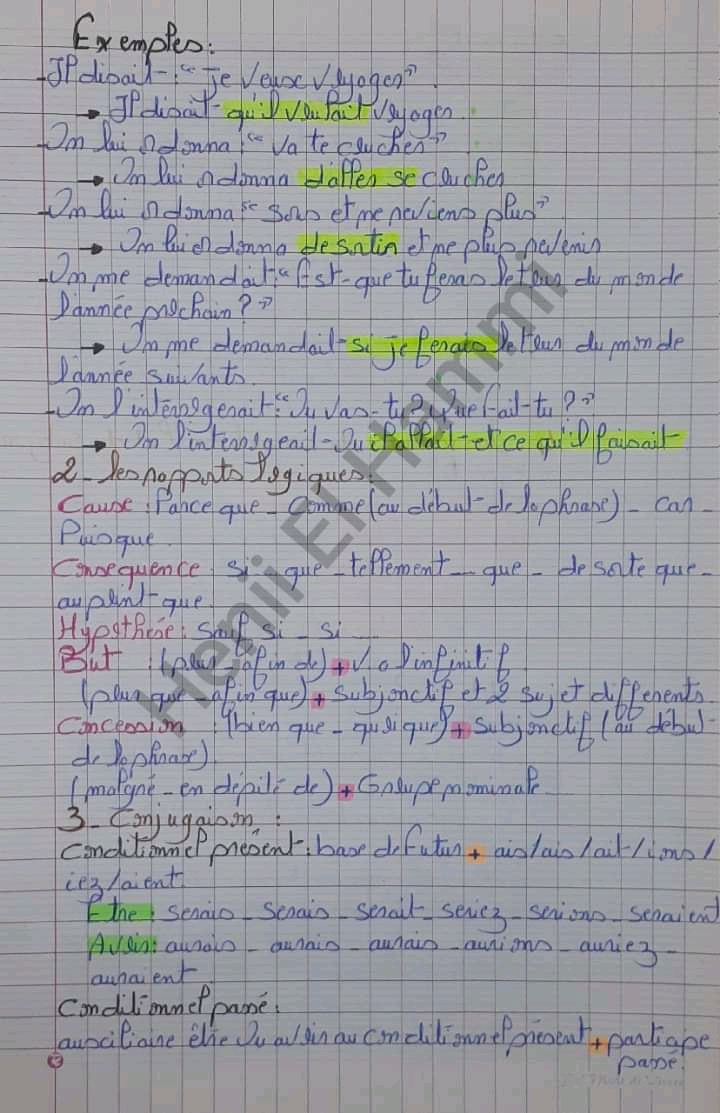 Exemples:
-Il disait: "Je veux voyager"
→ Il disait qu'il voulait voyager.
-On lui ordonna: "va te coucher"
→ On lui ordonna d'aller se coucher
-On lui ordonna "sors et ne reviens plus"
→ On lui ordonna de sortir et ne plus revenir
-On me demandait: "Est-que tu feras le tour du monde
l'année prochain?"
→ On me demandait si je ferais le tour du monde
l'année suivants.
-On l'interrogerait: "Où vas-tu? Que fait-tu?"
→ On l'interrogeait où il allait et ce qu'il faisait
2-les rapports logiques:
Cause: Parce que - Comme (au début de la phrase) - Car -
Puisque.
Consequence: si que - tellement - que - de sorte que -
au point que.
Hypothése: sauf si - si
But: (pour - afin de) + V a l'infinitif
(pour que - afin que) + subjonctif et 2 sujet differents
Concession: (bien que - quoique) + subjonctif (au début
de la phrase).
(malgré - en dépit de) + Groupe nominale
3-Conjugaison:
Conditionnel présent: base de futur + ais/ais/ait/ions/
iez/aient.
Etre: serais - serais - serait - seriez - serions - seraient
Avoir: aurais - aurais - aurais - aurions - auriez -
auraient
Conditionnel passé:
auxciliaire être Ou avoir au conditionnel présent + participe
passé.
Henii El Hammi